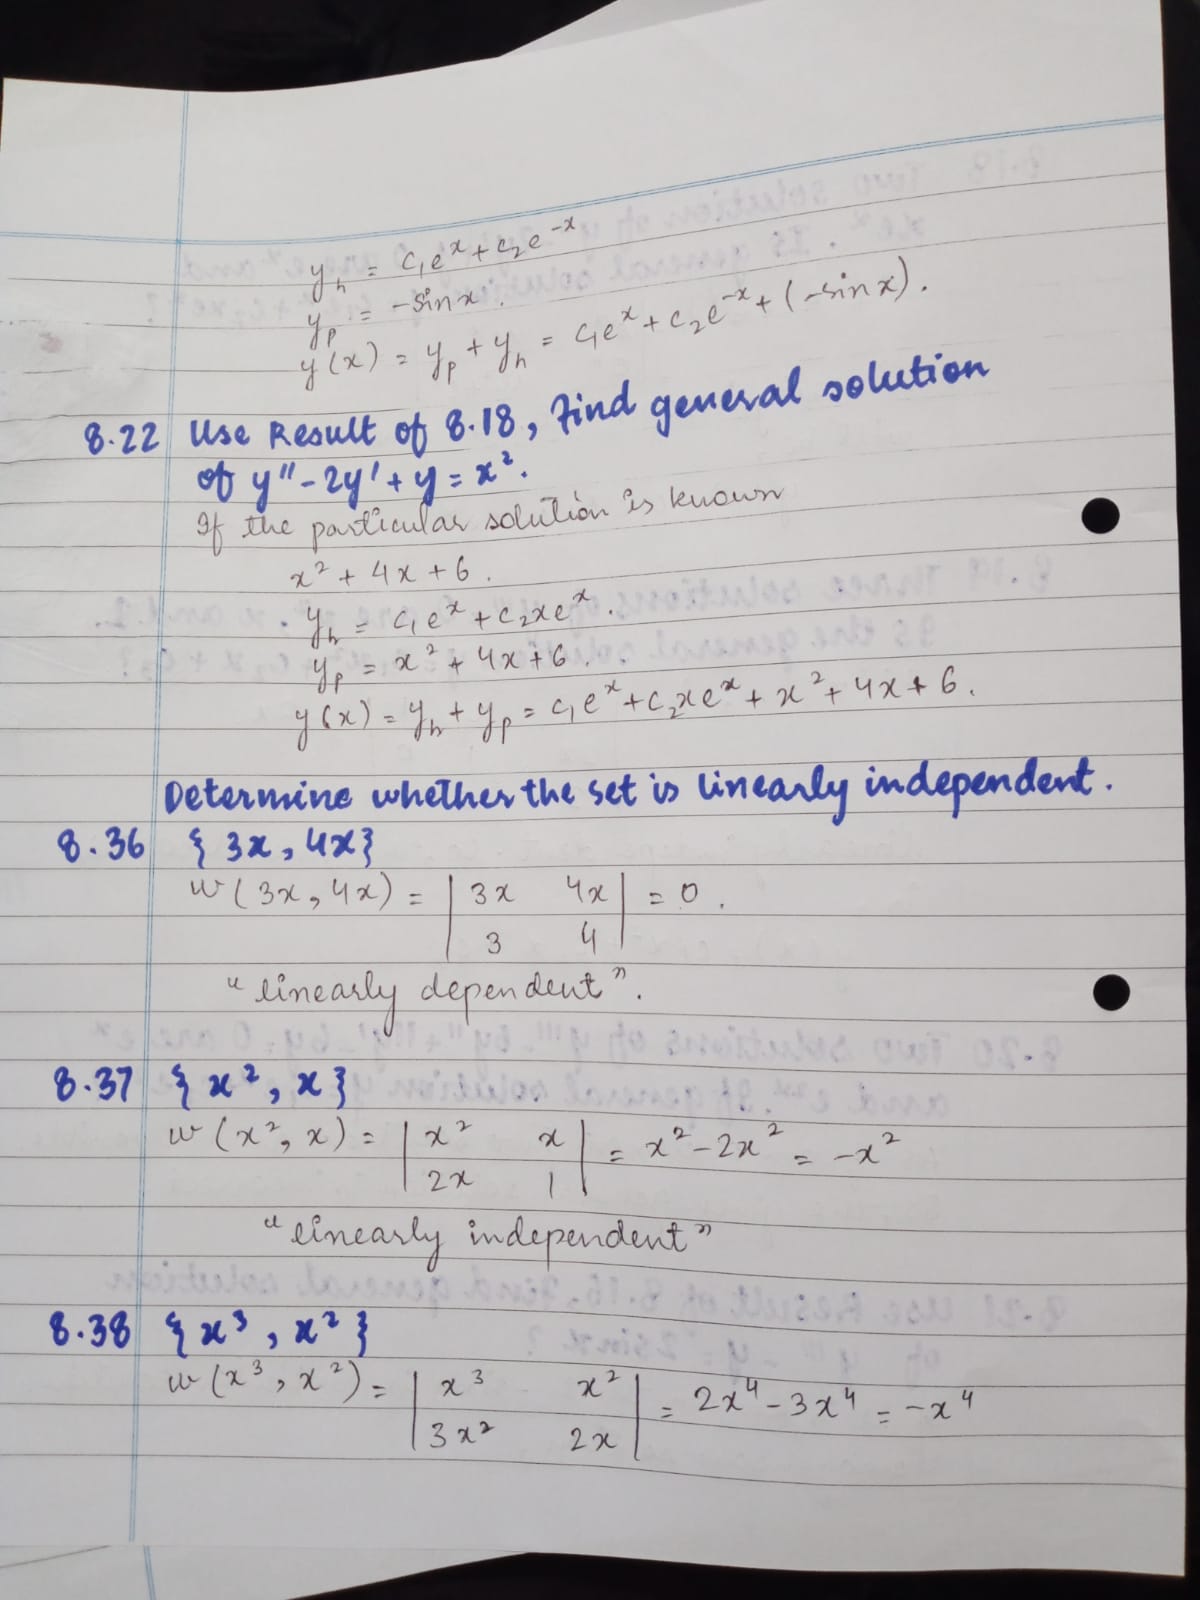 y_h = c₁eˣ + c₂e⁻ˣ
y_p = -sin x.
y(x) = y_p + y_h = c₁eˣ + c₂e⁻ˣ + (-sin x).
8.22 Use Result of 8.18, Find general solution
of y'' - 2y' + y = x².
If the particular solution is known
x² + 4x + 6.
y_h = c₁eˣ + c₂xeˣ.
y_p = x² + 4x + 6.
y(x) = y_h + y_p = c₁eˣ + c₂xeˣ + x² + 4x + 6.
Determine whether the set is linearly independent.
8.36 { 3x, 4x }
w(3x, 4x) = | 3x 4x | = 0.
3 4
"linearly dependent".
8.37 { x², x }
w(x², x) = | x² x | = x² - 2x² = -x²
2x 1
"linearly independent"
8.38 { x³, x² }
w(x³, x²) = | x³ x² | = 2x⁴ - 3x⁴ = -x⁴
3x² 2x